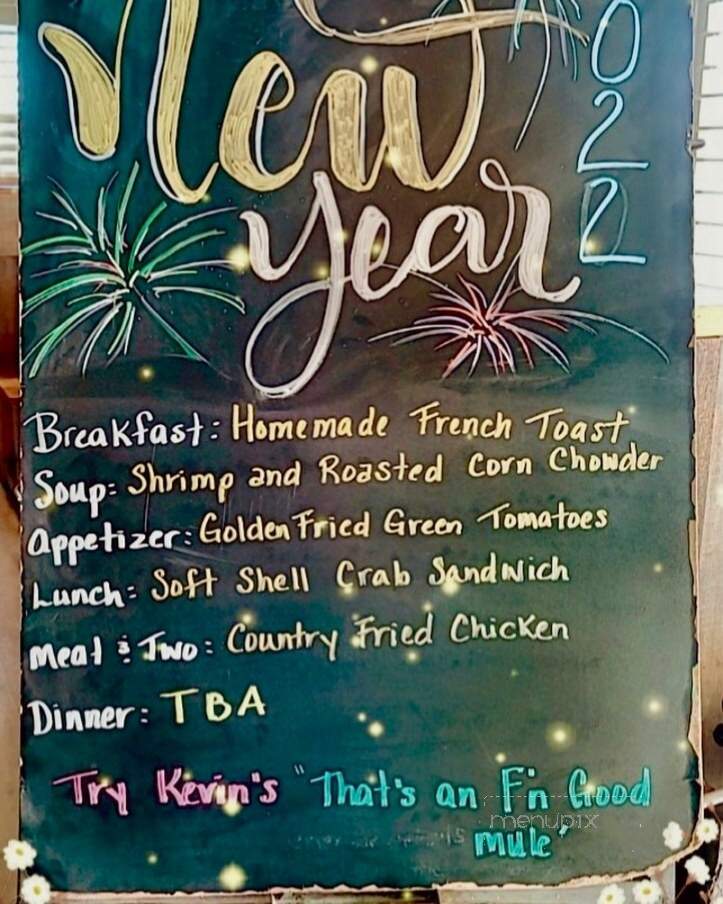 New
year
2022
Breakfast: Homemade French Toast
Soup: Shrimp and Roasted Corn Chowder
Appetizer: Golden Fried Green Tomatoes
Lunch: Soft Shell Crab Sandwich
Meat & Two: Country Fried Chicken
Dinner: TBA
Try Kevin's "That's an F'n Good
mule"
menupix